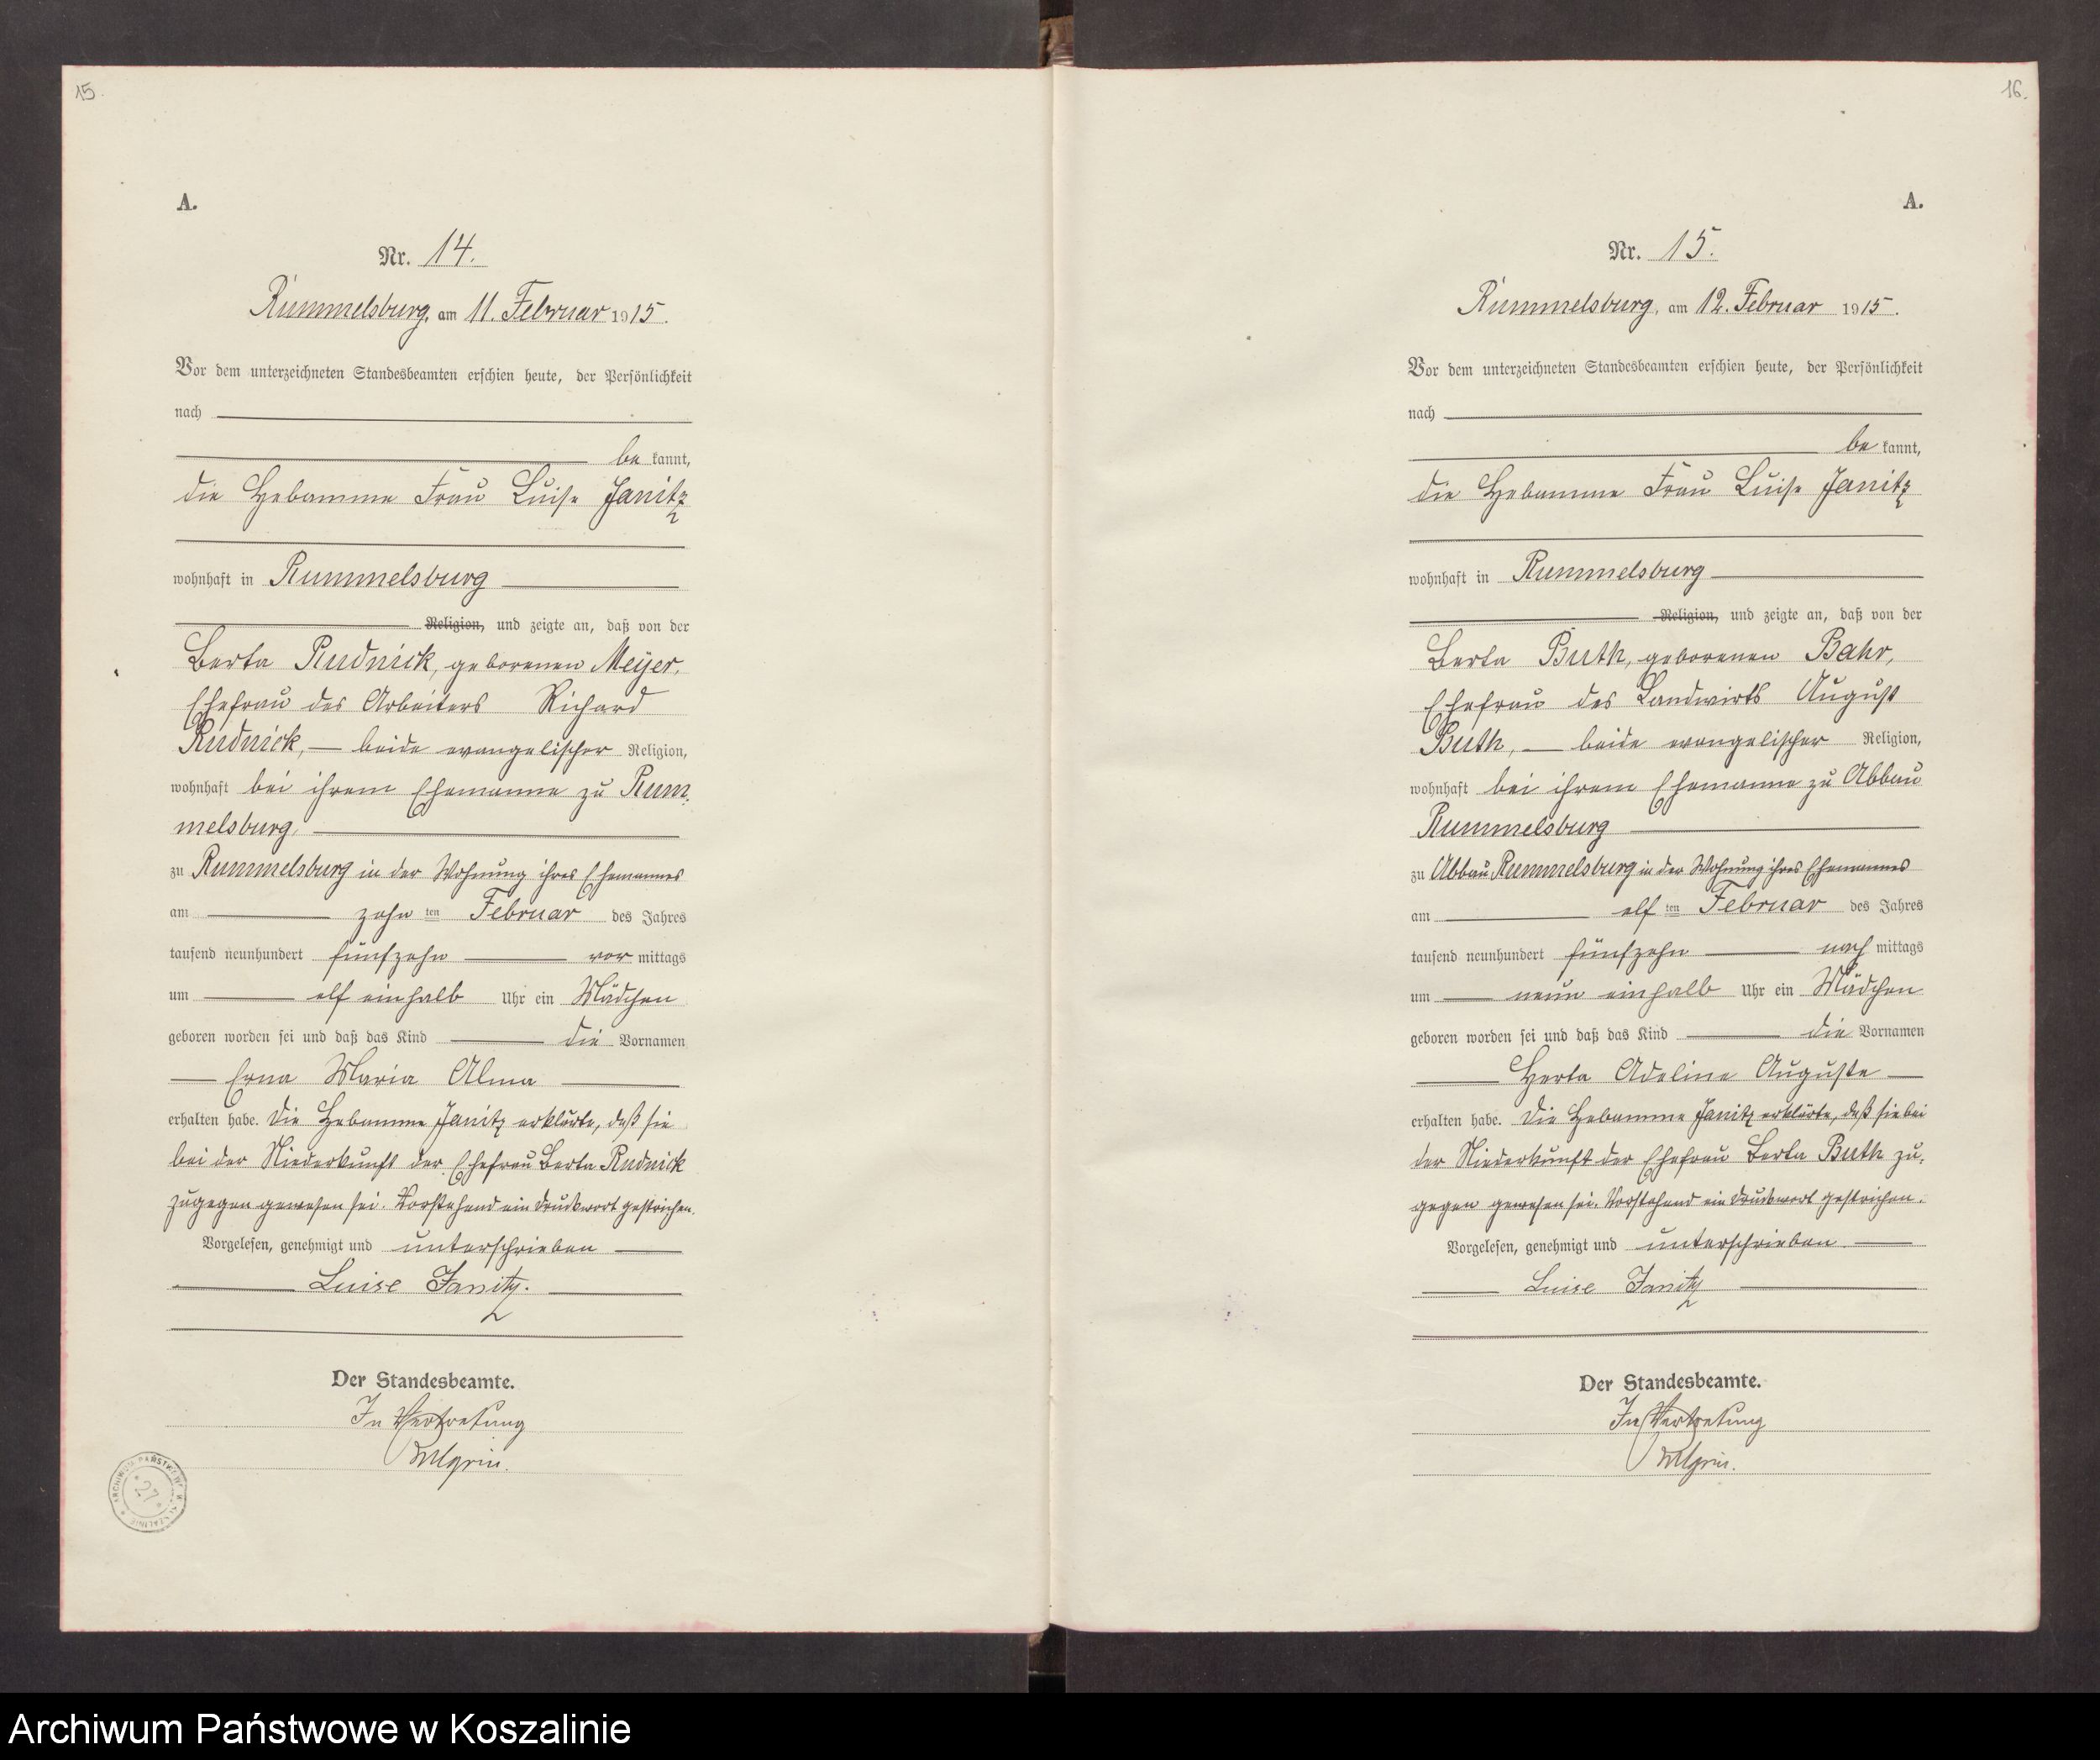 15.
A.
Nr. 14.
Rummelsburg, am 11. Februar 1915.
Vor dem unterzeichneten Standesbeamten erschien heute, der Persönlichkeit
nach
be kannt,
die Hebamme Frau Luise Janitz
wohnhaft in Rummelsburg
Religion, und zeigte an, daß von der
Berta Rudnick, geborenen Meyer,
Ehefrau des Arbeiters Richard
Rudnick, — beide evangelischer Religion,
wohnhaft bei ihrem Ehemanne zu Rum-
melsburg,
zu Rummelsburg in der Wohnung ihres Ehemannes
am zehn ten Februar des Jahres
tausend neunhundert fünfzehn vor mittags
um elf einhalb Uhr ein Mädchen
geboren worden sei und daß das Kind die Vornamen
Erna Maria Alma
erhalten habe. Die Hebamme Janitz erklärte, daß sie
bei der Niederkunft der Ehefrau Berta Rudnick
zugegen gewesen sei. Vorstehend ein Druckwort gestrichen.
Vorgelesen, genehmigt und unterschrieben
Luise Janitz.
Der Standesbeamte.
In Vertretung
ARCHIWUM PAŃSTWOWE W KOSZALINIE
27
16.
A.
Nr. 15.
Rummelsburg, am 12. Februar 1915.
Vor dem unterzeichneten Standesbeamten erschien heute, der Persönlichkeit
nach
be kannt,
die Hebamme Frau Luise Janitz
wohnhaft in Rummelsburg
Religion, und zeigte an, daß von der
Berta Buth, geborenen Bahr,
Ehefrau des Landwirts August
Buth, — beide evangelischer Religion,
wohnhaft bei ihrem Ehemanne zu Abbau
Rummelsburg
zu Abbau Rummelsburg in der Wohnung ihres Ehemannes
am elf ten Februar des Jahres
tausend neunhundert fünfzehn nach mittags
um neun einhalb Uhr ein Mädchen
geboren worden sei und daß das Kind die Vornamen
Herta Adeline Auguste
erhalten habe. Die Hebamme Janitz erklärte, daß sie bei
der Niederkunft der Ehefrau Berta Buth zu-
gegen gewesen sei. Vorstehend ein Druckwort gestrichen.
Vorgelesen, genehmigt und unterschrieben
Luise Janitz
Der Standesbeamte.
In Vertretung
Archiwum Państwowe w Koszalinie